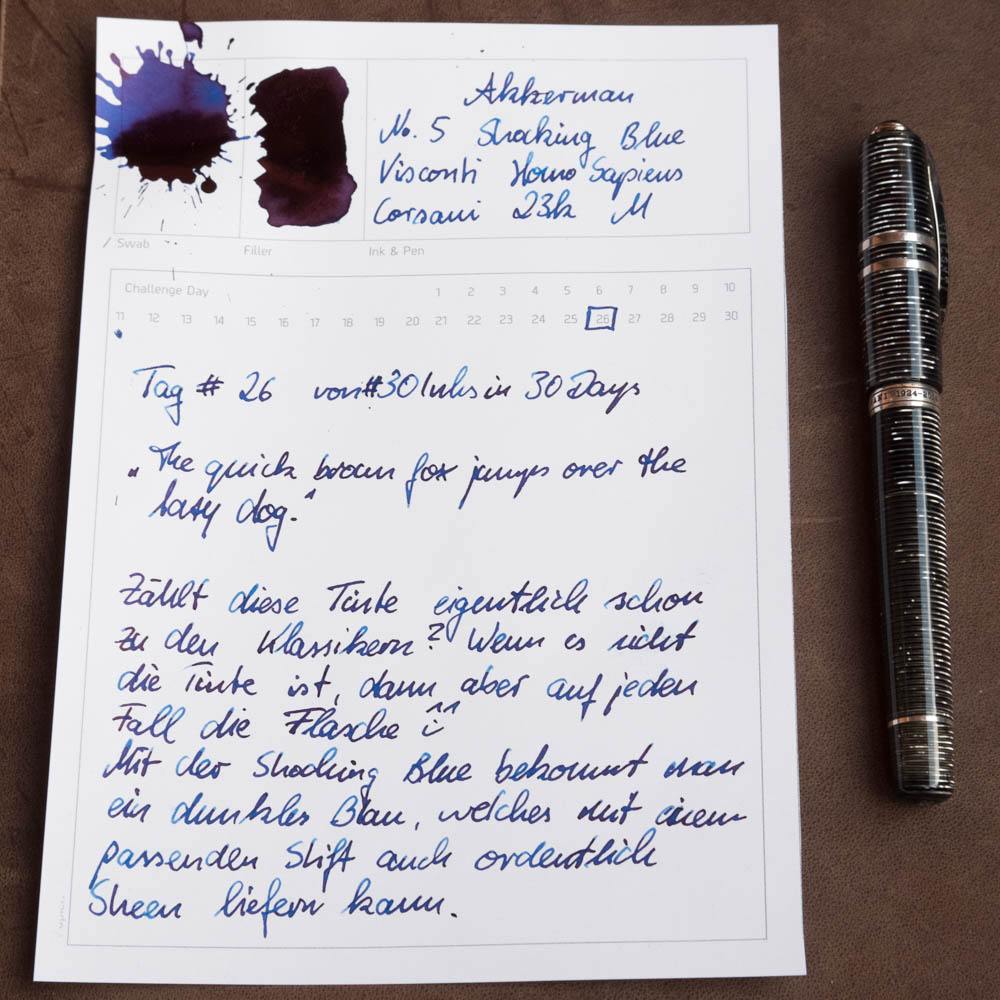 Akkerman
No. 5 Shocking Blue
Visconti Homo Sapiens
Corsani 23k M
Swab Filler Ink & Pen
Challenge Day 1 2 3 4 5 6 7 8 9 10
11 12 13 14 15 16 17 18 19 20 21 22 23 24 25 26 27 28 29 30
Tag # 26 von #30 Inks in 30 Days
„The quick brown fox jumps over the
lazy dog."
Zählt diese Tinte eigentlich schon
zu den Klassikern? Wenn es nicht
die Tinte ist, dann aber auf jeden
Fall die Flasche
Mit der Shocking Blue bekommt man
ein dunkles Blau, welches mit einem
passenden Stift auch ordentlich
Sheen liefern kann.
1924-20